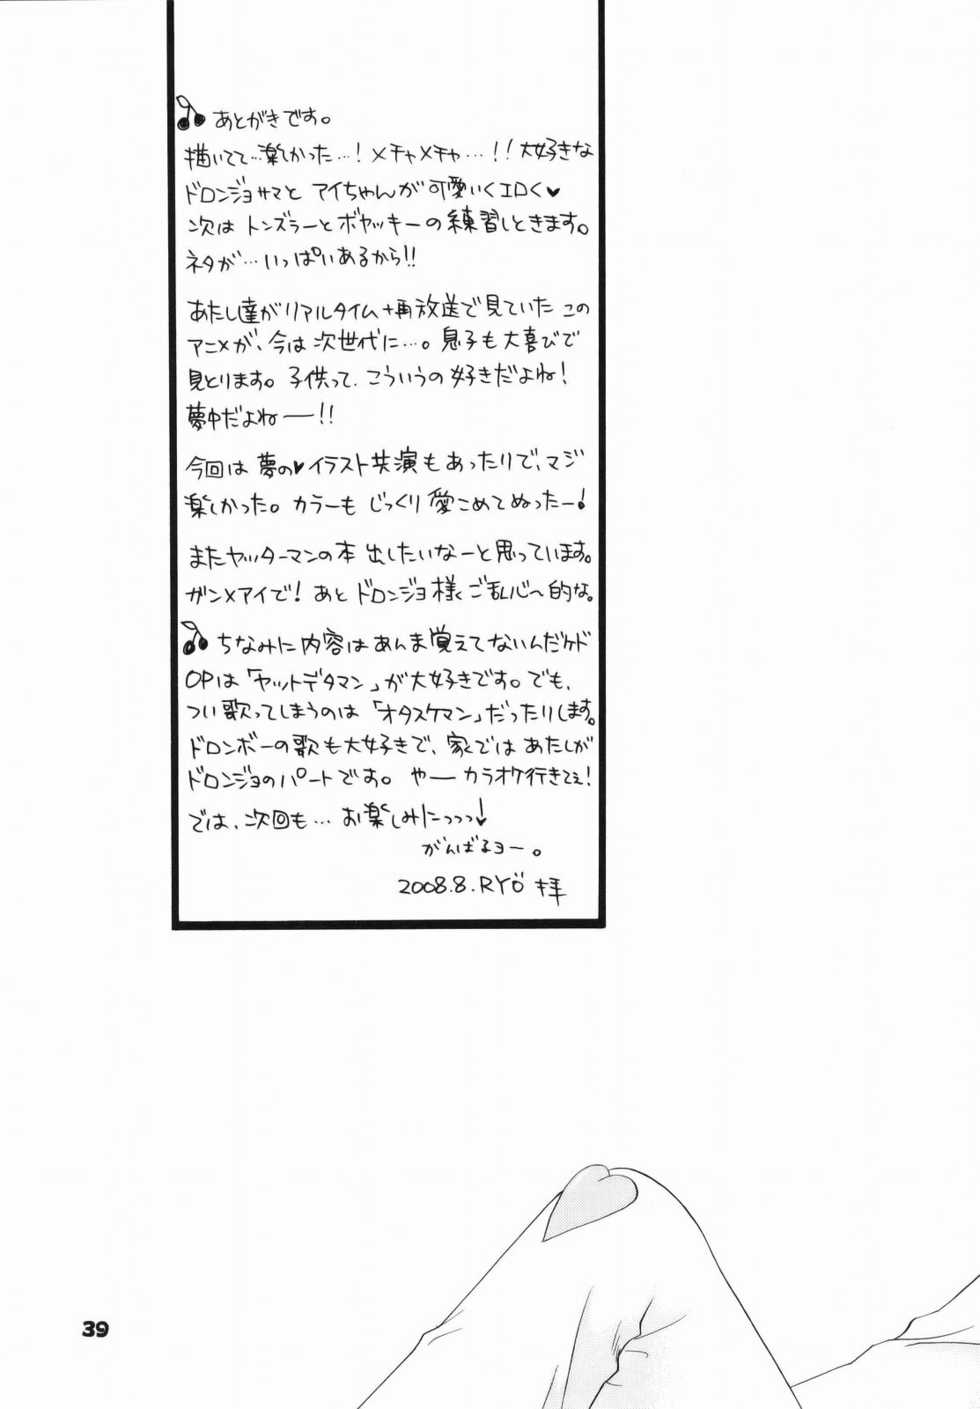 あとがきです。
描いてて…楽しかった…！メチャメチャ…！！大好きな
ドロンジョサマと アイちゃんが可愛いくエロく♥
次は トンズラーとボヤッキーの練習しときます。
ネタが…いっぱいあるから!!
あたし達がリアルタイム+再放送で見ていた この
アニメが、今は次世代に…。息子も大喜びで
見とります。子供って、こういうの好きだよね！
夢中だよねー!!
今回は夢の♥イラスト共演もあったりで、マジ
楽しかった。カラーもじっくり愛こめてぬったー！
またヤッターマンの本 出したいなーと思っています。
ガン×アイで！あと ドロンジョ様ご乱心〜的な。
ちなみに内容はあんま覚えてないんだケド
OPは「ヤットデタマン」が大好きです。でも、
つい歌ってしまうのは「オタスケマン」だったりします。
ドロンボーの歌も大好きで、家ではあたしが
ドロンジョのパートです。やーカラオケ行きてぇ！
では、次回も…お楽しみにっっっ！
がんばるヨー。
2008.8.RYÖ 拝
39